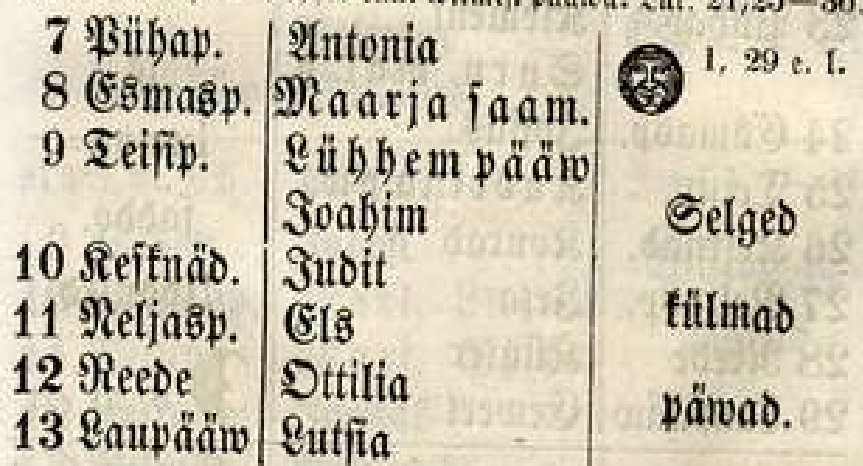 7 Pühap. Antonia 1, 29 e. l.
8 Esmasp. Maarja saam.
9 Teisip. Lühhem pääw
Joahim Selged
10 Kesknäd. Judit
11 Neljasp. Els külmad
12 Reede Ottilia
13 Laupääw Lutsia päwad.